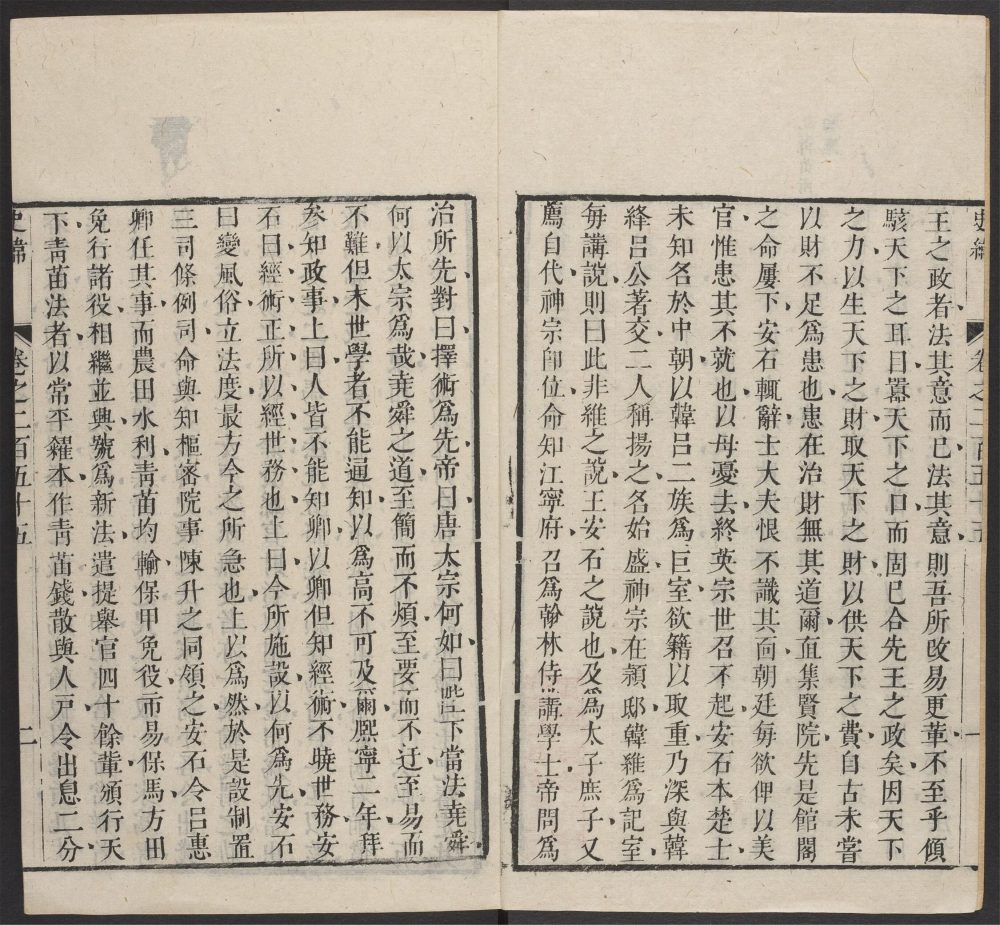 史緯 卷之二百五十五 一
王之政者法其意而已法其意則吾所改易更革不至乎傾
駭天下之耳目囂天下之口而固已合先王之政矣因天下
之力以生天下之財取天下之財以供天下之費自古未嘗
以財不足爲患也患在治財無其道爾直集賢院先是館閣
之命屢下安石輒辭士大夫恨不識其面朝廷每欲俾以美
官惟患其不就也以母憂去終英宗世召不起安石本楚士
未知名於中朝以韓呂二族爲巨室欲籍以取重乃深與韓
絳呂公著交二人稱揚之名始盛神宗在潁邸韓維爲記室
每講說則曰此非維之說王安石之說也及爲太子庶子又
薦自代神宗卽位命知江寧府召爲翰林侍講學士帝問爲
治所先對曰擇術爲先帝曰唐太宗何如曰陛下當法堯舜
何以太宗爲哉堯舜之道至簡而不煩至要而不迂至易而
不難但末世學者不能通知以爲高不可及爾熙寧二年拜
參知政事上曰人皆不能知卿以卿但知經術不曉世務安
石曰經術正所以經世務也上曰今所施設以何爲先安石
曰變風俗立法度最方今之所急也上以爲然於是設制置
三司條例司命與知樞密院事陳升之同領之安石令呂惠
卿任其事而農田水利青苗均輸保甲免役市易保馬方田
免行諸役相繼並興號爲新法遣提舉官四十餘輩頒行天
下青苗法者以常平糴本作青苗錢散與人戸令出息二分
史緯 卷之二百五十五 二